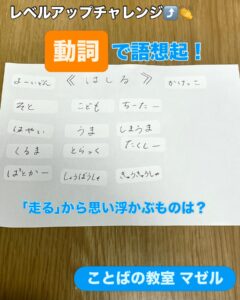 レベルアップチャレンジ⤴️💪
動詞で語想起！
よーいどん 《はしる》 かけっこ
あと こども ちーたー
はやい うま しまうま
くるま とらっく たくしー
ぱとかー しょうぼうしゃ きゅうきゅうしゃ
「走る」から思い浮かぶものは？
ことばの教室 マゼル